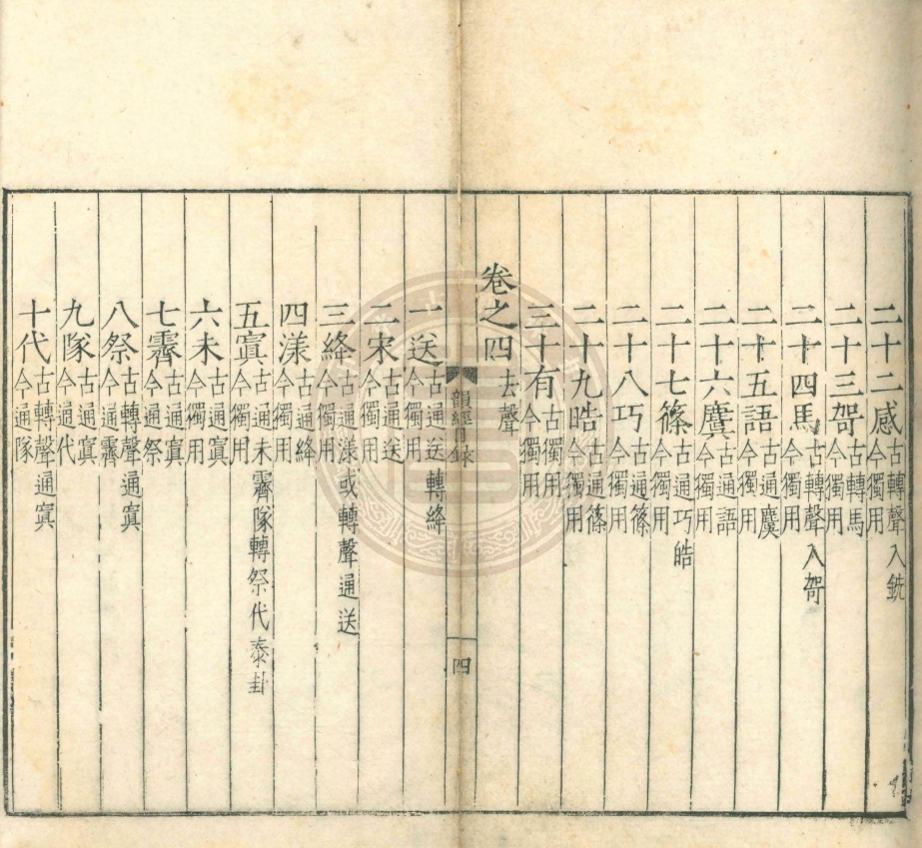 二十二感古轉聲入銑今獨用
二十三哿古轉馬今獨用
二十四馬古轉聲入哿今獨用
二十五語古通麌今獨用
二十六麌古通語今獨用
二十七篠古通巧皓今獨用
二十八巧古通篠今獨用
二十九晧古通篠今獨用
三十有古獨用今獨用
卷之四去聲
韻經目錄 四
一送古通送轉絳今獨用
二宋古通送今獨用
三絳古通漾或轉聲通送今獨用
四漾古通絳今獨用
五寘古通未霽隊轉祭代泰卦今獨用
六未古通寘今獨用
七霽古通寘今通祭
八祭古轉聲通寘今通霽
九隊古通寘今通代
十代古轉聲通寘今通隊